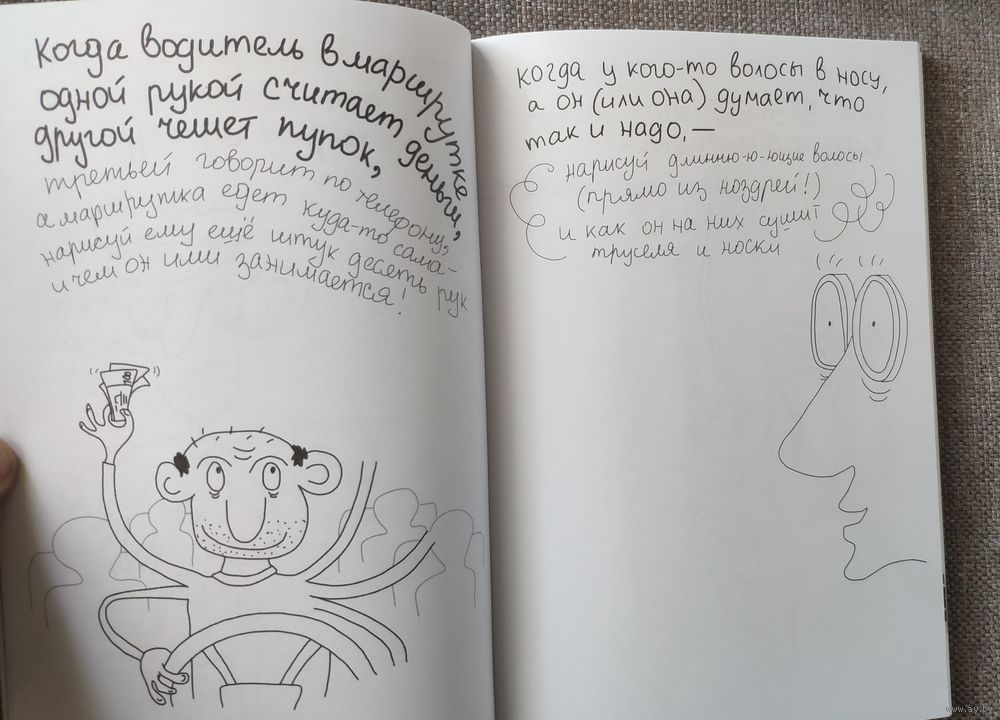 когда водитель в маршрутке
одной рукой считает деньги,
другой чешет пупок,
третьей говорит по телефону,
а маршрутка едет куда-то сама –
нарисуй ему ещё штук десять рук
и чем он ими занимается!
100
когда у кого-то волосы в носу,
а он (или она) думает, что
так и надо, —
нарисуй длинню-ю-ющие волосы
(прямо из ноздрей!)
и как он на них сушит
труселя и носки
www.ay.by